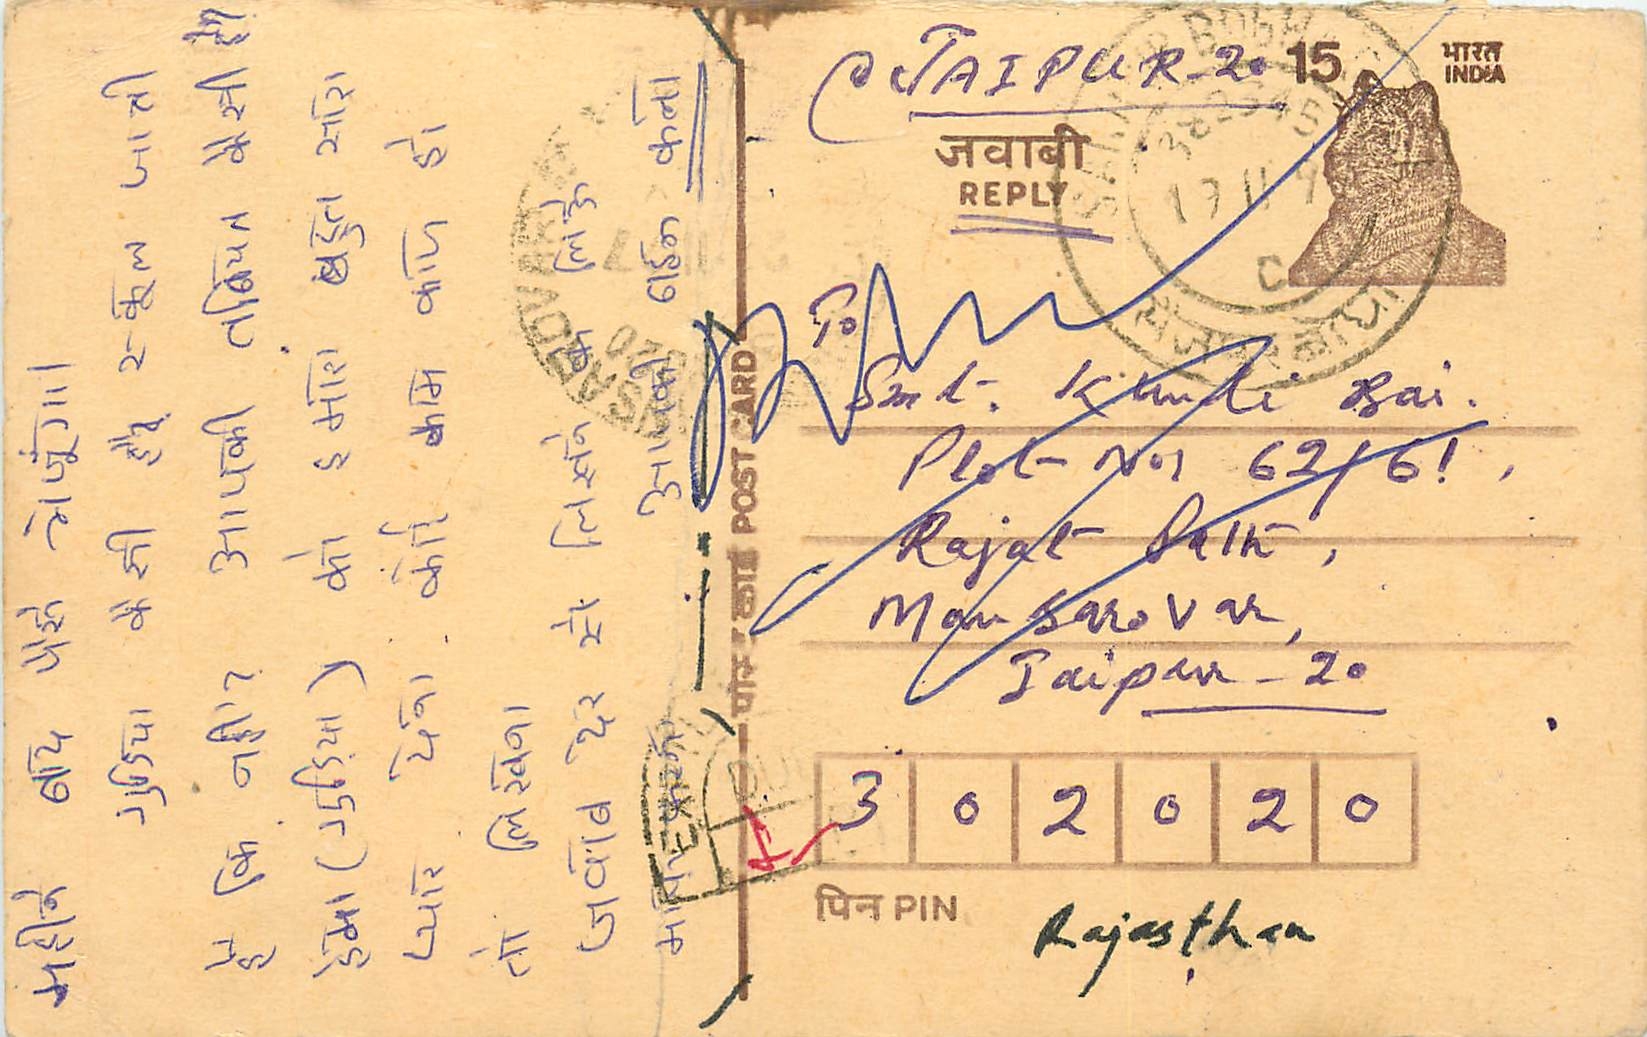 JAIPUR-20
15
भारत
INDIA
जवाबी
REPLY
To
Smt. Kunti Bai.
Plot No 62/61,
Rajat Path,
Mansarovar,
Jaipur-20
पोस्ट कार्ड POST CARD
3 0 2 0 2 0
पिन PIN
Rajasthan
महीने बाद पैसे भेजूंगा।
गुड़िया कैसी है, स्कूल जाती
है कि नहीं? आपकी तबियत कैसी है
हेमा (गुड़िया) को हमारा बहुत सारा
प्यार देना कोई काम काज हो
तो लिखना
जवाब देर से लिखने के लिये
माफ करना